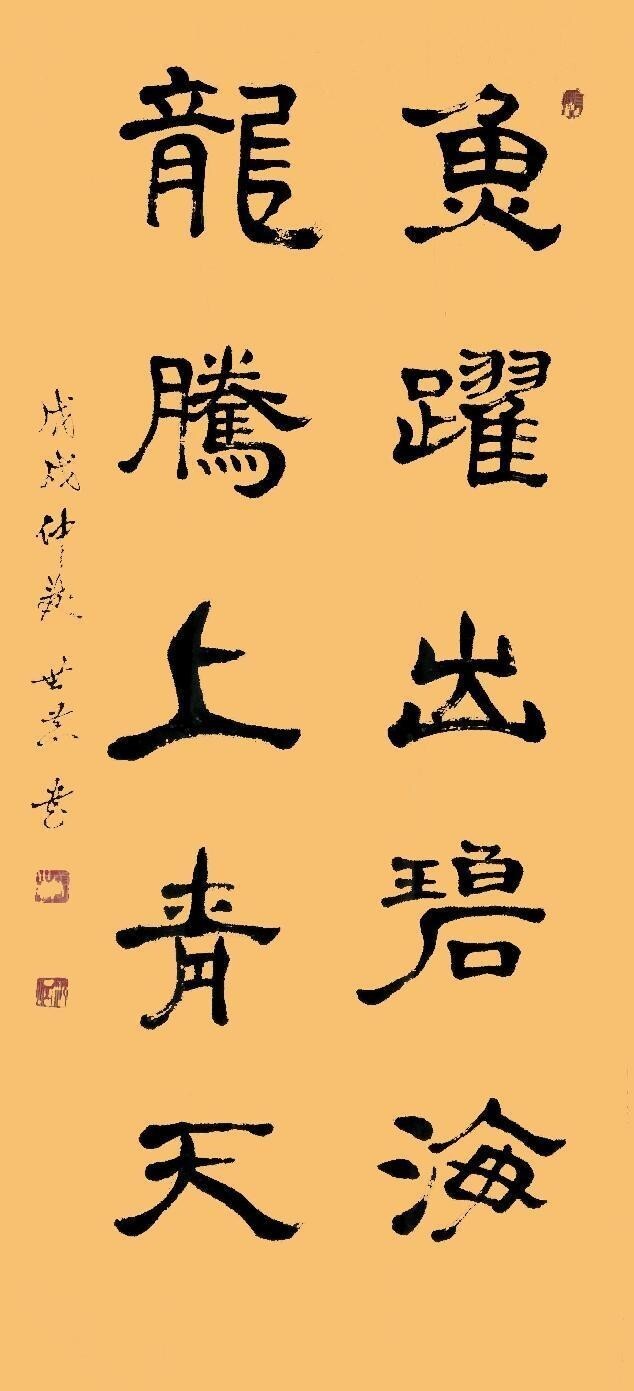 魚躍出碧海
龍騰上青天
戊戌仲秋 世 書